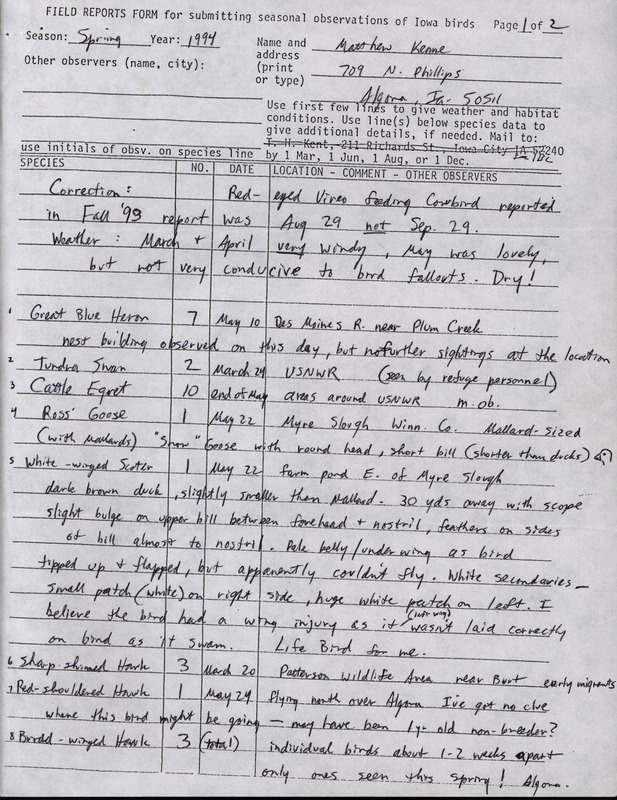 FIELD REPORTS FORM for submitting seasonal observations of Iowa birds Page 1 of 2
Season: Spring Year: 1994
Name and address (print or type)
Matthew Kenne
709 N. Phillips
Algona, Ia. 50511
Other observers (name, city):
Use first few lines to give weather and habitat
conditions. Use line(s) below species data to
give additional details, if needed. Mail to:
T. H. Kent, 211 Richards St., Iowa City IA 52240
use initials of obsv. on species line by 1 Mar, 1 Jun, 1 Aug, or 1 Dec.
SPECIES NO. DATE LOCATION - COMMENT - OTHER OBSERVERS
Correction: Red-eyed Vireo feeding Cowbird reported
in Fall '93 report was Aug 29 not Sep. 29.
Weather: March + April very windy, May was lovely,
but not very conducive to bird fallouts. Dry!
1 Great Blue Heron 7 May 10 Des Moines R. near Plum Creek
nest building observed on this day, but no further sightings at the location
2 Tundra Swan 2 March 24 USNWR (seen by refuge personnel)
3 Cattle Egret 10 end of May areas around USNWR m.ob.
4 Ross' Goose 1 May 22 Myre Slough Winn. Co. Mallard-sized
(with Mallards) "Snow" Goose with round head, short bill (shorter than ducks)
5 White-winged Scoter 1 May 22 farm pond E. of Myre Slough
dark brown duck, slightly smaller than Mallard - 30 yds away with scope
slight bulge on upper bill between forehead + nostril, feathers on sides
of bill almost to nostril. Pale belly/underwing as bird
tipped up + flapped, but apparently couldn't fly. White secondaries -
small patch (white) on right side, huge white patch on left. I
believe the bird had a wing injury as it (left wing) wasn't laid correctly
on bird as it swam. Life Bird for me.
6 Sharp-shinned Hawk 3 March 20 Patterson Wildlife Area near Burt early migrants
7 Red-shouldered Hawk 1 May 29 flying north over Algona I've got no clue
where this bird might be going - may have been 1 yr old non-breeder?
8 Broad-winged Hawk 3 (total) individual birds about 1-2 weeks apart
only ones seen this spring! Algona.